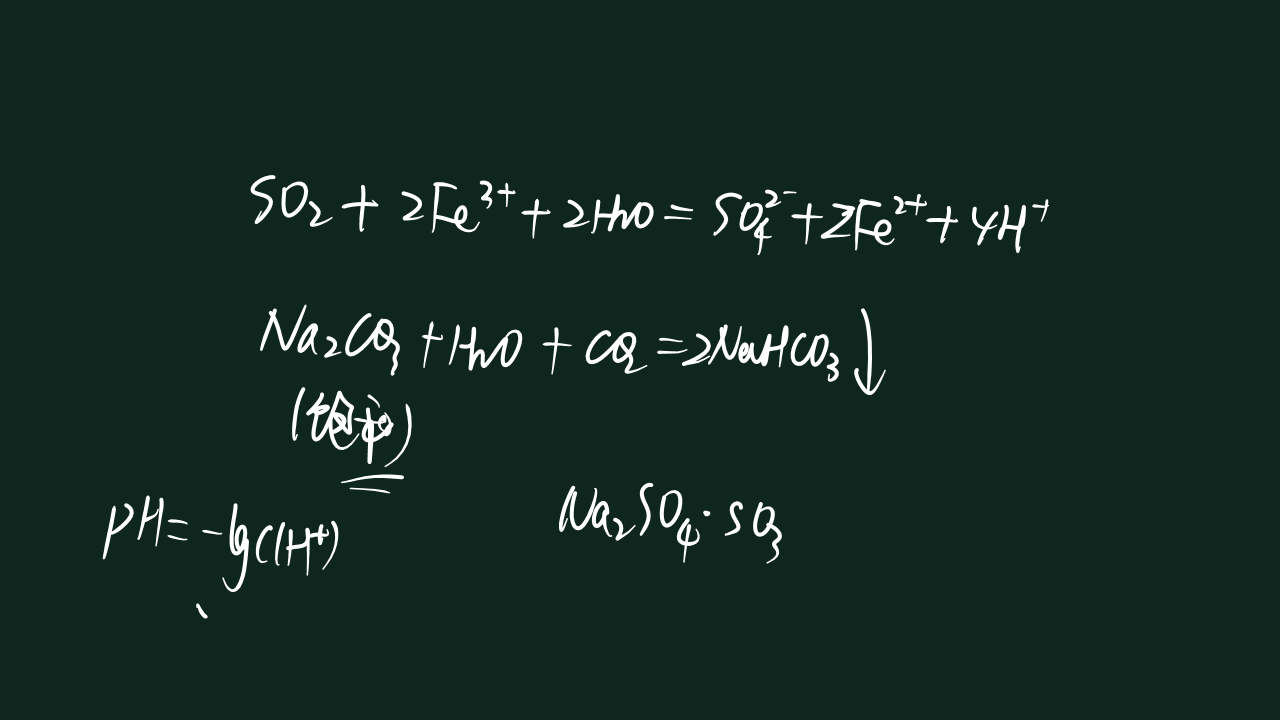 SO₂ + 2Fe³⁺ + 2H₂O = SO₄²⁻ + 2Fe²⁺ + 4H⁺
Na₂CO₃ + H₂O + CO₂ = 2NaHCO₃ ↓
(饱和)
PH = -lgC(H⁺)
Na₂SO₄·SO₃